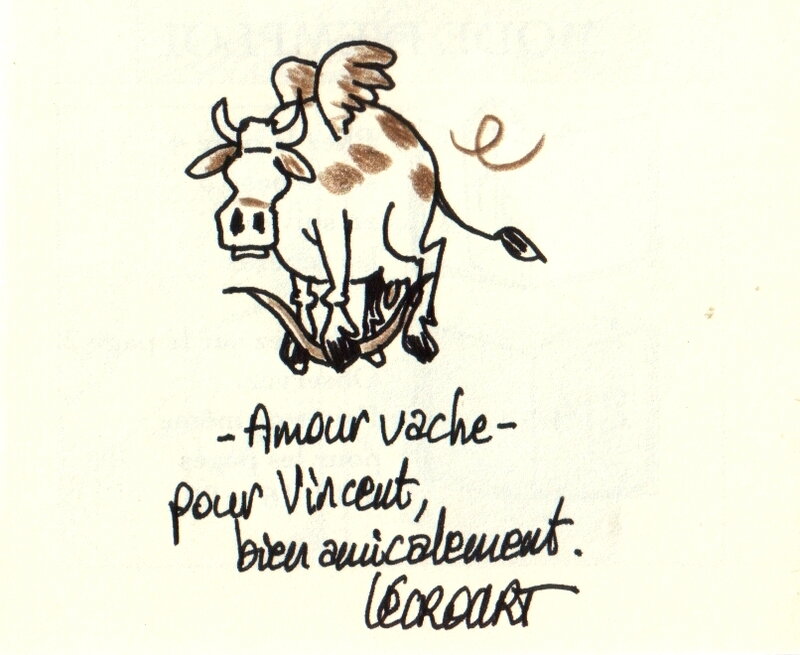 - Amour vache -
pour Vincent,
bien amicalement.
LÉCROART